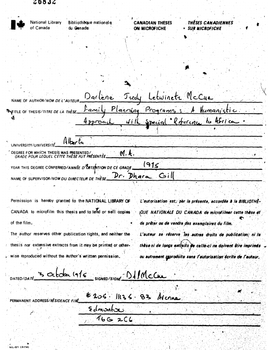 26832
National Library of Canada
Bibliothèque nationale du Canada
CANADIAN THESES ON MICROFICHE
THÈSES CANADIENNES SUR MICROFICHE
NAME OF AUTHOR/NOM DE L'AUTEUR Darlene Judy Letwinetz McCue
TITLE OF THESIS/TITRE DE LA THÈSE Family Planning Programs : A Humanistic
Approach with Special Reference to Africa
UNIVERSITY/UNIVERSITÉ Alberta
DEGREE FOR WHICH THESIS WAS PRESENTED/
GRADE POUR LEQUEL CETTE THÈSE FUT PRÉSENTÉE M.A.
YEAR THIS DEGREE CONFERRED/ANNÉE D'OBTENTION DE CE GRADE 1976
NAME OF SUPERVISOR/NOM DU DIRECTEUR DE THÈSE Dr. Dhara Gill
Permission is hereby granted to the NATIONAL LIBRARY OF
CANADA to microfilm this thesis and to lend or sell copies
of the film.
The author reserves other publication rights, and neither the
thesis nor extensive extracts from it may be printed or other-
wise reproduced without the author's written permission.
L'autorisation est, par la présente, accordée à la BIBLIOTHÈ-
QUE NATIONALE DU CANADA de microfilmer cette thèse et
de prêter ou de vendre des exemplaires du film.
L'auteur se réserve les autres droits de publication; ni la
thèse ni de longs extraits de celle-ci ne doivent être imprimés
ou autrement reproduits sans l'autorisation écrite de l'auteur.
DATED/DATÉ 3 October 1976 SIGNED/SIGNÉ DJMcCue
PERMANENT ADDRESS/RÉSIDENCE FIXE # 206 - 11136 - 82 Avenue
Edmonton
T6G 2C6